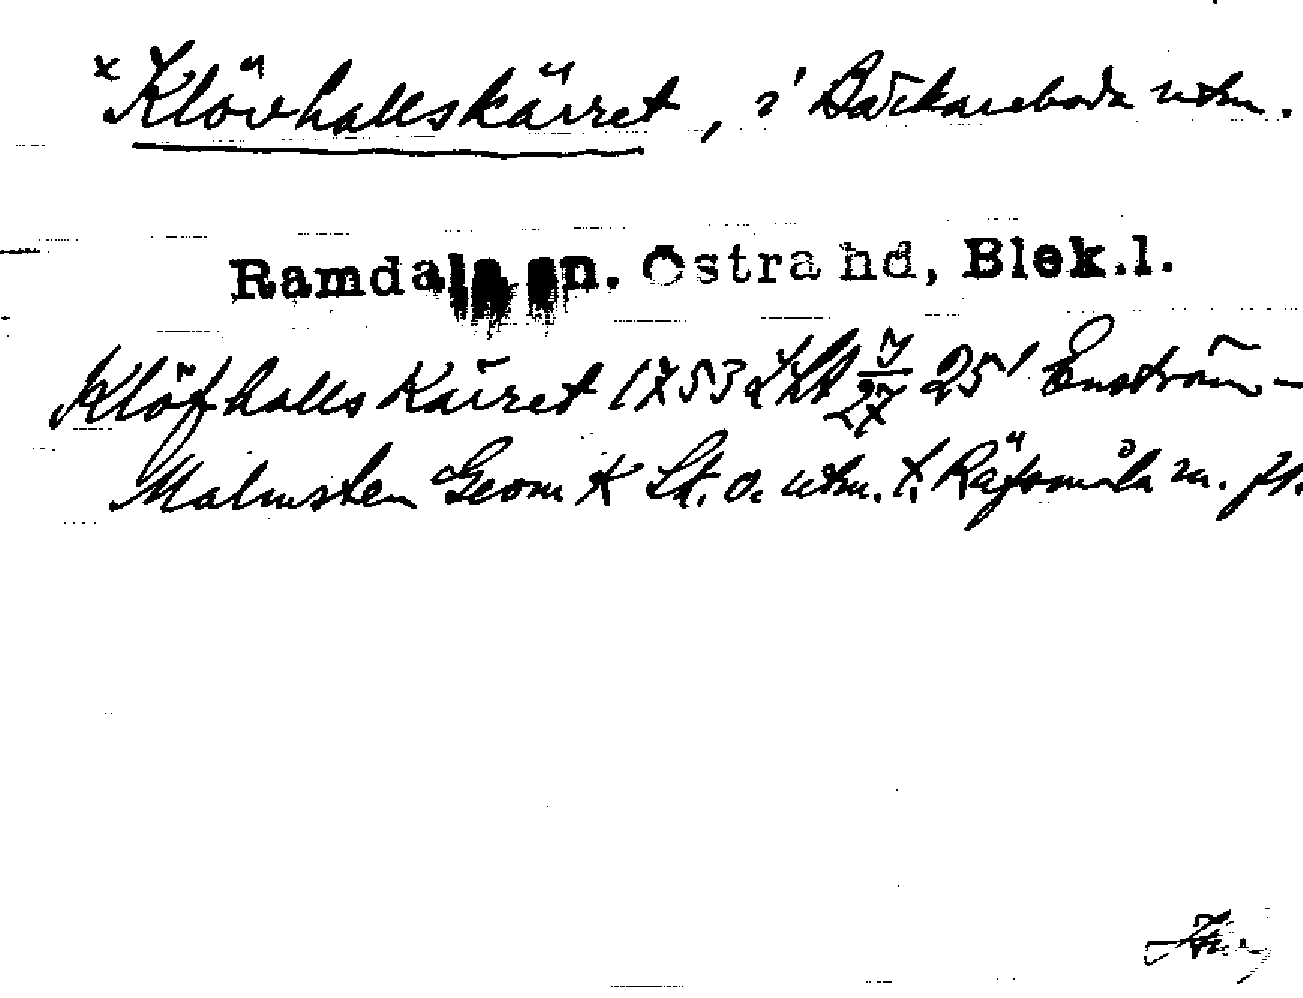 × Klövhallskärret, i Bäckareboda utm.
Ramdala sn. Östra hd, Blek.l.
Klöfhalls Kärret 1753 Lht 7/27 251 Enström-
Malmsten Geom K Lt. o. utm. t. Räfsmåla m. fl.